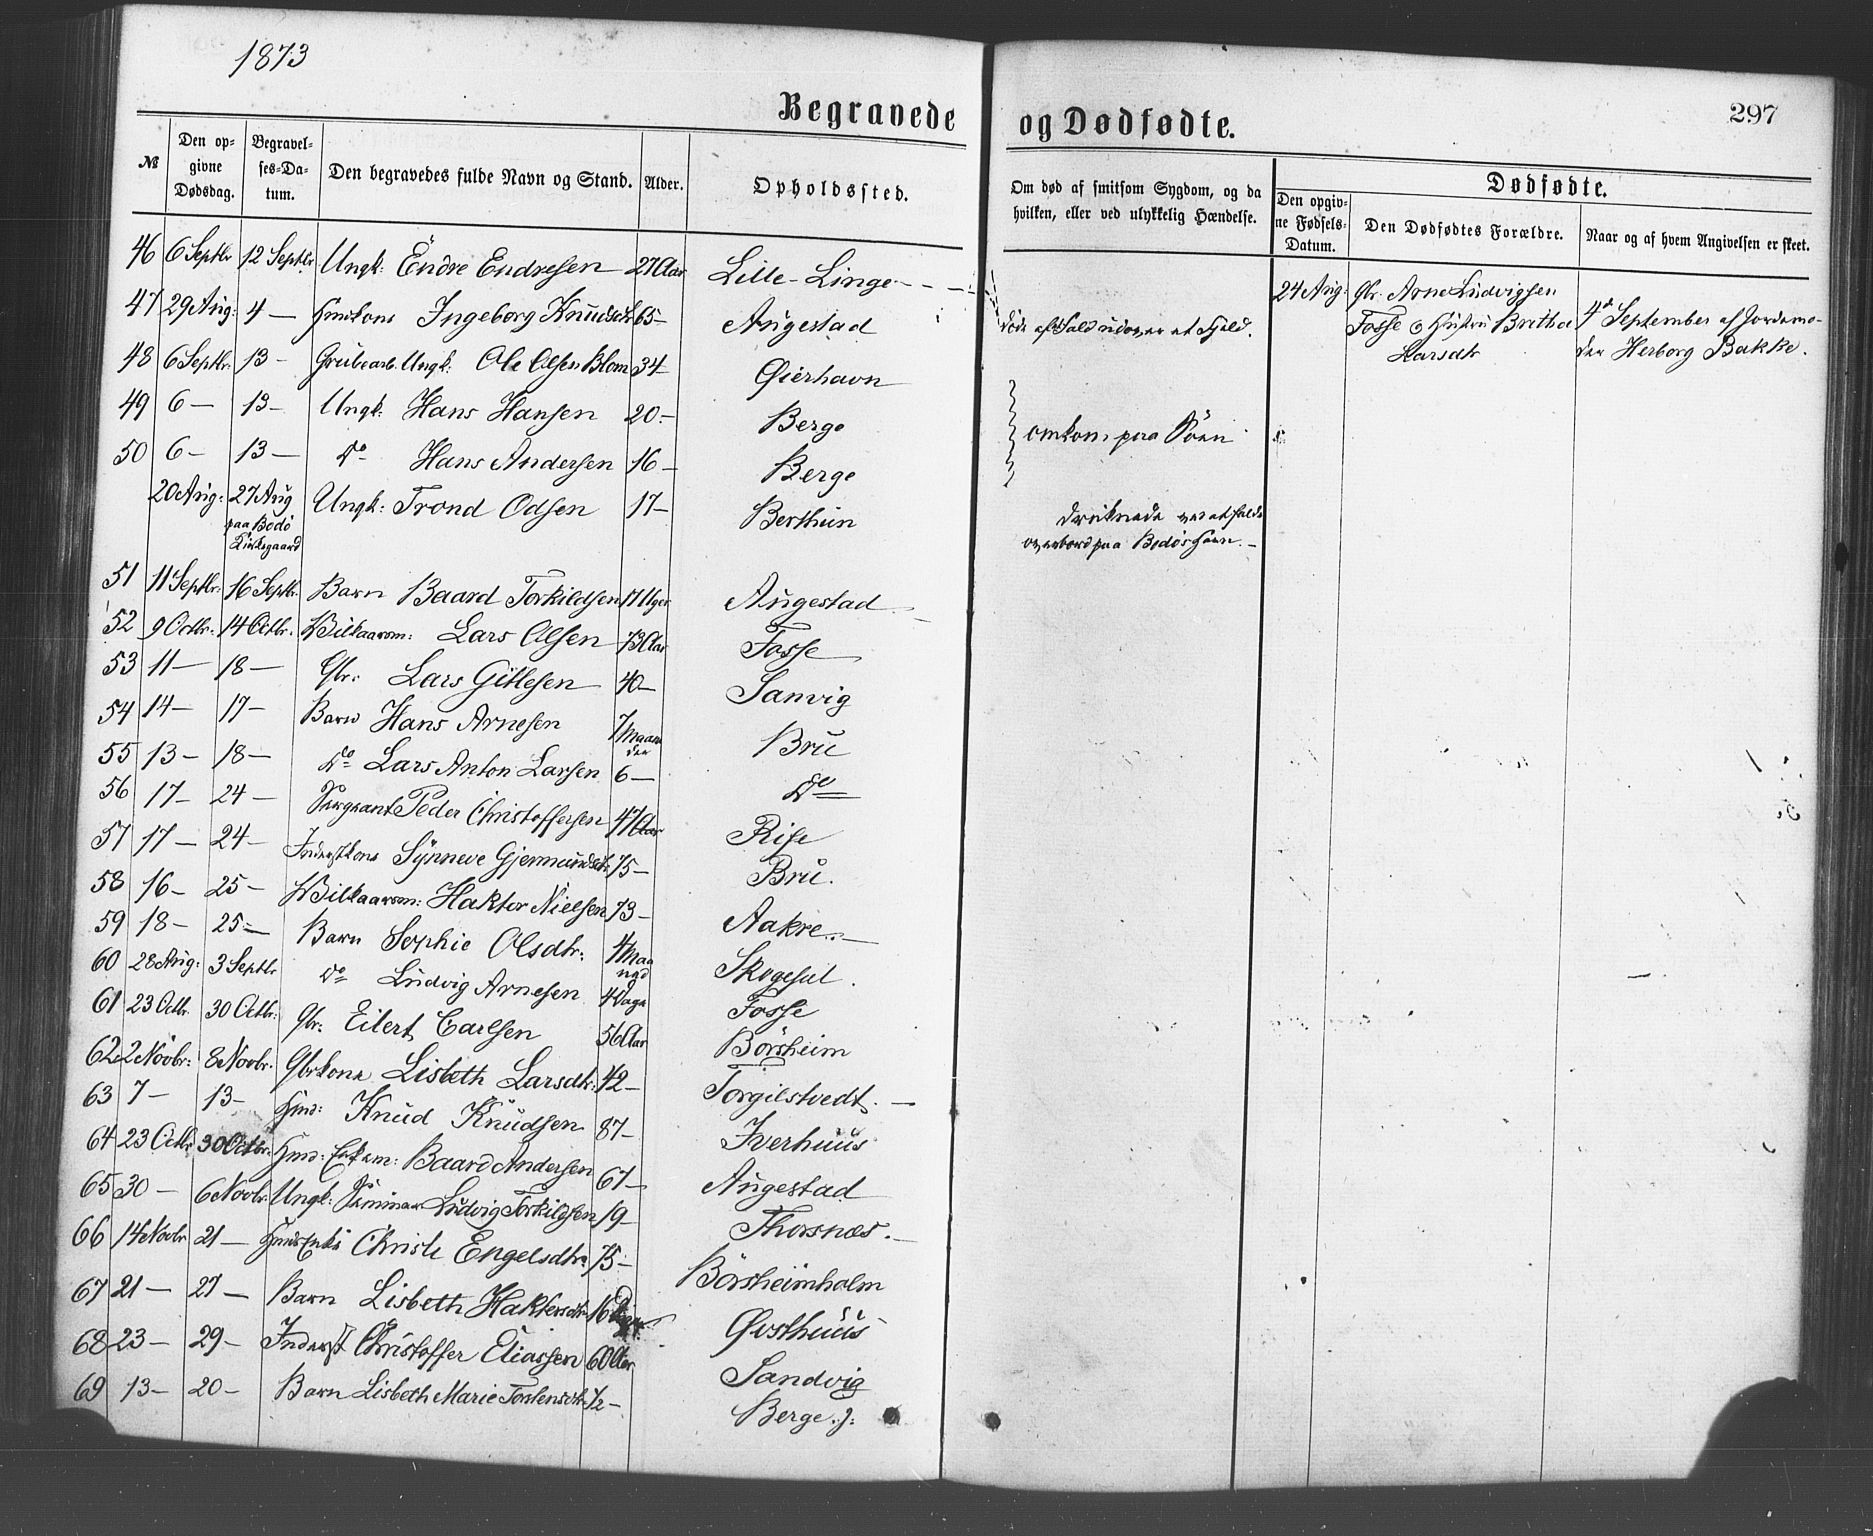 1873
Begravede og Dødfødte.
297
№ Den opgivne Dødsdag. Begravelses-Datum. Den begravedes fulde Navn og Stand. Alder. Opholdssted. Om død af smitsom Sygdom, og da hvilken, eller ved ulykkelig Hændelse. Dødfødte. Den opgivne Fødsels-Datum. Den Dødfødtes Forældre. Naar og af hvem Angivelsen er skeet.
46 6 Septbr 12 Septbr Ungk: Endre Endresen 27 Aar Lille-Linge
24 Aug: Gbr. Arne Ludvigsen
Fosse & Hustru Britha
Larsdtr
4de September af Jordemo-
der Herborg Bakke.
47 29 Aug: 4 — Hmdkone Ingeborg Knudsdtr 65 — Augestad døde af Fald udover et Fjeld.
48 6 Septbr: 13 — Grubearb. Ungk: Ole Olsen Blom 34 Øierhavn
49 6 — 13 — Ungk: Hans Hansen 20 — Berge omkom paa Søen
50 6 — 13 — do Hans Andersen 16 — Berge
20 Aug: 27 Aug paa Bodö Kirkegaard Ungk: Trond Odsen 17 — Berthun druknede ved at falde
overbord paa Bodøs Havn. —
51 11 Septbr: 16 Septbr. Barn Baard Torkildsen 17 Uger Augestad
52 9 Octbr: 14 Octbr. Vilkaarsm: Lars Olsen 73 Aar Fosse
53 11 — 18 — Gbr: Lars Gitlesen 40 — Sanvig
54 14 — 17 — Barn Hans Arnesen 7 Maaneder Bru
55 13 — 18 — do Lars Anton Larsen 6 — do
56 17 — 24 — Sergeant Peder Christoffersen 47 Aar Rise
57 17 — 24 — Inderstkone Synneve Gjermundsdtr 75 — Bru.
58 16 — 25 — Vilkaarsm: Haktor Nielsen 73 — Aakre. —
59 18 — 25 — Barn Sophie Olsdtr: 4 Skogesel.
60 28 Aug: 3 Septbr do Ludvig Arnesen 4 Dage Fosse
61 23 Octbr. 30 Octbr: Gbr: Eilert Carlsen 56 Aar Börsheim
62 2 Novbr: 8 Novbr. Gbrkone Lisbeth Larsdtr: 42 — Torgilstvedt. —
63 7 — 13 — Hmd: Knud Knudsen 87 — Iverhuus
64 23 Octbr 30 Octbr. Hmd: Enkem: Baard Andersen 67 — Augestad
65 30 — 6 Novbr. Ungk: Seminar Ludvig Torkildsen 19 — Thorsnes. —
66 14 Novbr 21 — HmdsEnke Christi Engelsdtr 75 — Börsheimholm
67 21 — 27 — Barn Lisbeth Haktorsdtr 16 Dage Østhuus
68 23 — 29 — Inderst Christoffer Eliassen 60 Aar Sandvig
69 13 — 20 — Barn Lisbeth Marie Torstensdtr 1/2 — Berge. J: